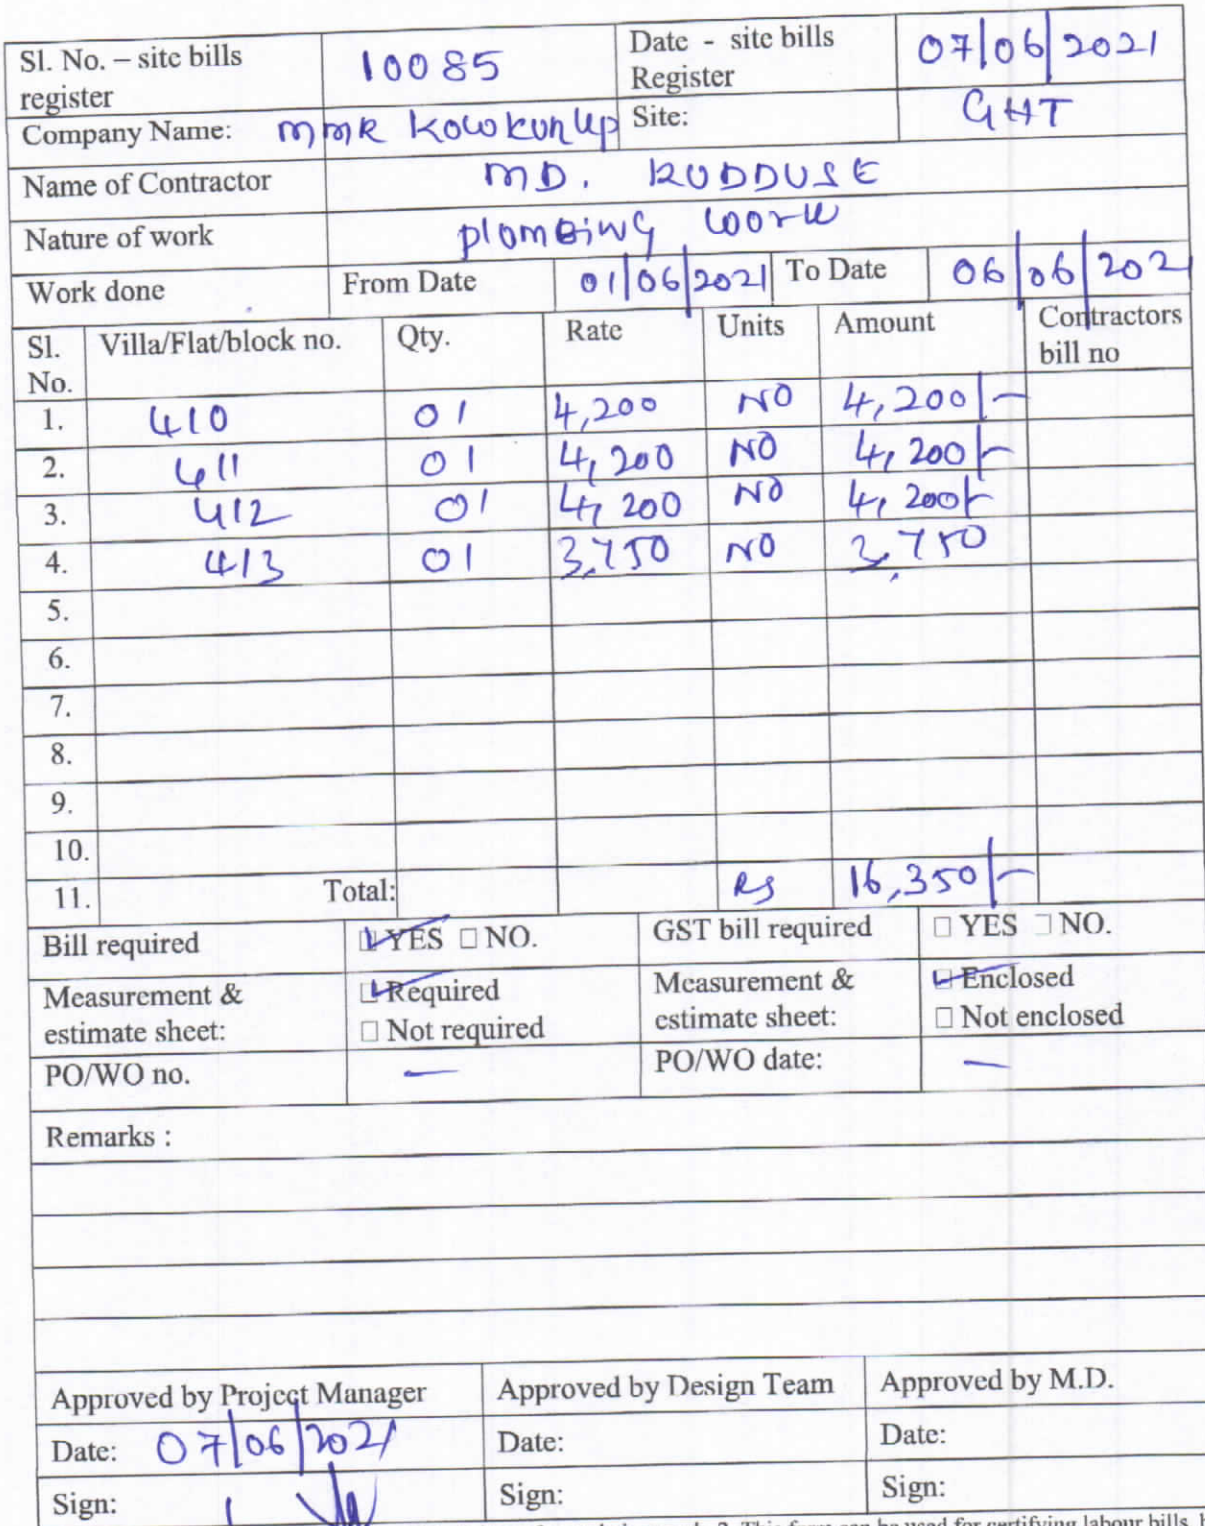 Sl. No. – site bills register 10085 Date - site bills Register 07/06/2021
Company Name: MMR KOWKUR LLP Site: GHT
Name of Contractor MD. KUDDUSE
Nature of work plomBiwG woork
Work done From Date 01/06/2021 To Date 06/06/202
Sl. No. Villa/Flat/block no. Qty. Rate Units Amount Contractors bill no
1. 410 01 4,200 NO 4,200/-
2. 411 01 4,200 NO 4,200/-
3. 412 01 4,200 NO 4,200/-
4. 413 01 3,750 NO 3,750
5.
6.
7.
8.
9.
10.
11. Total: Rs 16,350/-
Bill required ☑ YES □ NO. GST bill required □ YES □ NO.
Measurement & estimate sheet: ☑ Required □ Not required Measurement & estimate sheet: ☑ Enclosed □ Not enclosed
PO/WO no. — PO/WO date: —
Remarks :
Approved by Project Manager Approved by Design Team Approved by M.D.
Date: 07/06/2021 Date: Date:
Sign: Sign: Sign:
2. This form can be used for certifying labour bills,